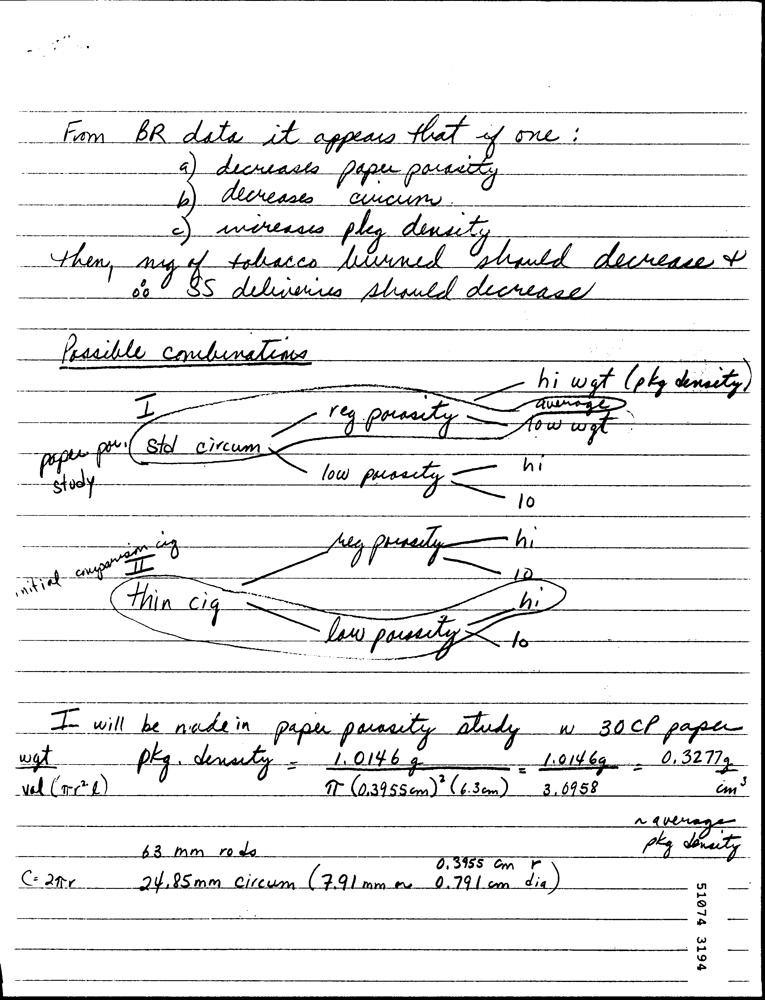 From BR data it appears that if one:
a) decreases paper porosity
b) decreases circum.
c) increases pkg density
then, mg of tobacco burned should decrease &
∴ SS deliveries should decrease
Possible combinations
hi wgt (pkg density)
I
reg porosity
average
low wgt
paper por. study
Std circum
low porosity
hi
lo
initial comparison cig
II
reg porosity
hi
lo
thin cig
hi
low porosity
lo
I will be made in paper porosity study w 30 CP paper
wgt
vol (πr²l)
pkg. density = 1.0146 g / π (0.3955 cm)² (6.3 cm) = 1.0146 g / 3.0958 = 0.3277 g / cm³
~ average
pkg density
63 mm rods
C = 2πr
24.85 mm circum (7.91 mm or 0.791 cm dia)
0.3955 cm r
51074 3194